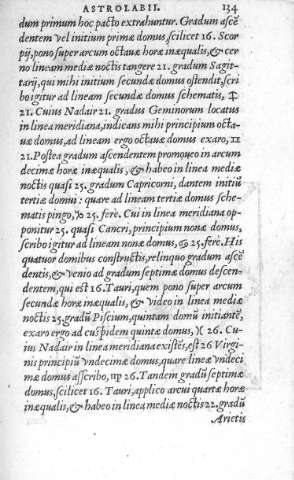 ASTROLABII. 134
dum primum hoc pacto extrahuntur. Gradum ascē
dentem vel initium primæ domus scilicet 16. Scor
pij, pono super arcum octauæ horæ inæqualis, & cer
no lineam mediæ noctis tangere 21. gradum Sagit-
tarij, qui mihi initium secundæ domus ostendit, scri
bo igitur ad lineam secundæ domus schematis, ♐
21. Cuius Nadair 21. gradus Geminorum locatus
in linea meridiana, indicans mihi principium octa-
uæ domus, ad lineam ergo octauæ domus exaro, ♊
21. Postea gradum ascendentem promoueo in arcum
decimæ horæ inæqualis, & habeo in linea mediæ
noctis quasi 25. gradum Capricorni, dantem initiū
tertiæ domui: quare ad lineam tertiæ domus sche-
matis pingo, ♑ 25. ferè. Cui in linea meridiana op-
ponitur 25. quasi Cancri, principium nonæ domus,
scribo igitur ad lineam nonæ domus, ♋ 25. ferè. His
quatuor domibus constructis, relinquo gradum ascē
dentis, & venio ad gradum septimæ domus descen-
dentem, qui est 16. Tauri, quem pono super arcum
secundæ horæ inæqualis, & video in linea mediæ
noctis 25. gradū Piscium, quintam domū initiantē,
exaro ergo ad cuspidem quintæ domus, ♓ 26. Cu-
ius Nadair in linea meridiana existēs, est 26 Virgi-
nis principiū vndecimæ domus, quare lineæ vndeci
mæ domus asscribo, ♍ 26. Tandem gradū septimæ
domus, scilicet 16. Tauri, applico arcui quartæ horæ
inæqualis, & habeo in linea mediæ noctis 22. gradū
Arietis